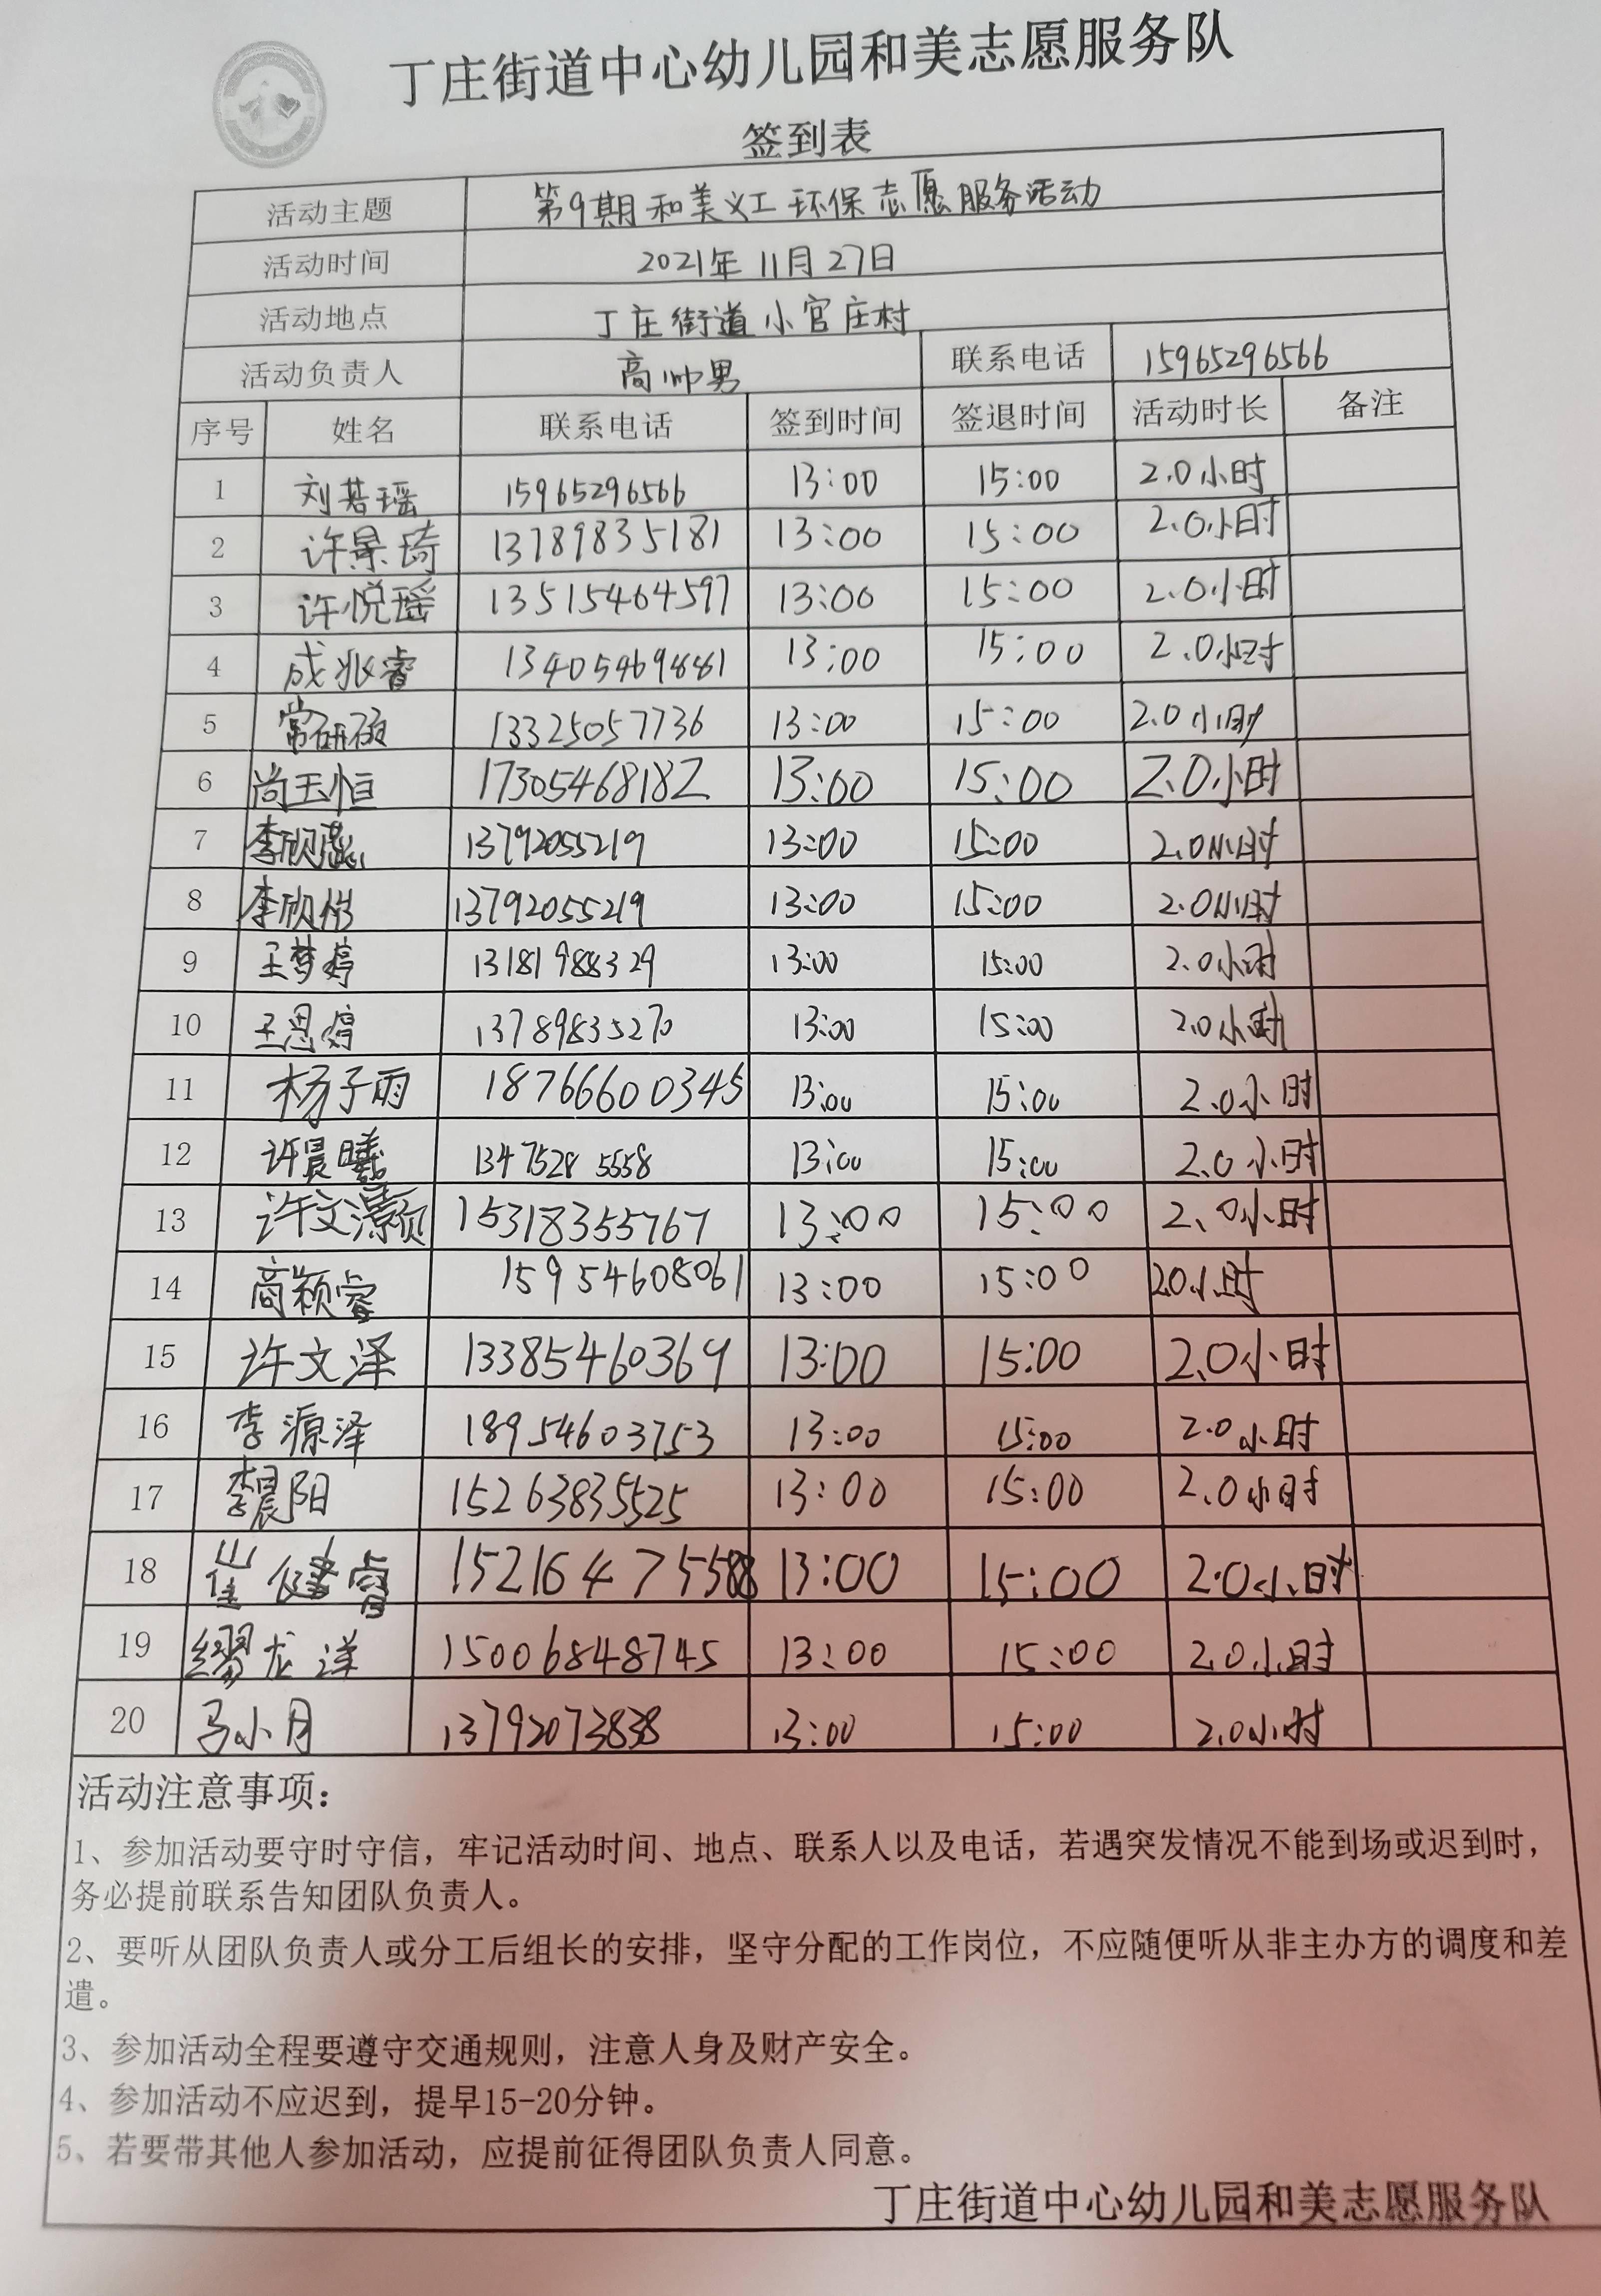 丁庄街道中心幼儿园和美志愿服务队
签到表
活动主题 第9期和美义工环保志愿服务活动
活动时间 2021年11月27日
活动地点 丁庄街道小官庄村
活动负责人 高帅男 联系电话 15965296566
序号 姓名 联系电话 签到时间 签退时间 活动时长 备注
1 刘若瑶 15965296566 13:00 15:00 2.0小时
2 许景琦 13789835181 13:00 15:00 2.0小时
3 许悦瑶 13515464597 13:00 15:00 2.0小时
4 成兆睿 13405469881 13:00 15:00 2.0小时
5 常研硕 13325057736 13:00 15:00 2.0小时
6 尚玉恒 17305468182 13:00 15:00 2.0小时
7 李欣燕 13792055219 13:00 15:00 2.0小时
8 李欣 13792055219 13:00 15:00 2.0小时
9 王梦婷 13181988329 13:00 15:00 2.0小时
10 王思婷 13789835270 13:00 15:00 2.0小时
11 杨子雨 18766600345 13:00 15:00 2.0小时
12 许晨曦 13475285558 13:00 15:00 2.0小时
13 许文灏 15318355767 13:00 15:00 2.0小时
14 高颖睿 15954608061 13:00 15:00 2.0小时
15 许文泽 13385460369 13:00 15:00 2.0小时
16 李源泽 18954603753 13:00 15:00 2.0小时
17 李晨阳 15263835525 13:00 15:00 2.0小时
18 崔健睿 15216475588 13:00 15:00 2.0小时
19 缪龙洋 15006848745 13:00 15:00 2.0小时
20 马小月 13792073838 13:00 15:00 2.0小时
活动注意事项：
1、参加活动要守时守信，牢记活动时间、地点、联系人以及电话，若遇突发情况不能到场或迟到时，
务必提前联系告知团队负责人。
2、要听从团队负责人或分工后组长的安排，坚守分配的工作岗位，不应随便听从非主办方的调度和差
遣。
3、参加活动全程要遵守交通规则，注意人身及财产安全。
4、参加活动不应迟到，提早15-20分钟。
5、若要带其他人参加活动，应提前征得团队负责人同意。
丁庄街道中心幼儿园和美志愿服务队